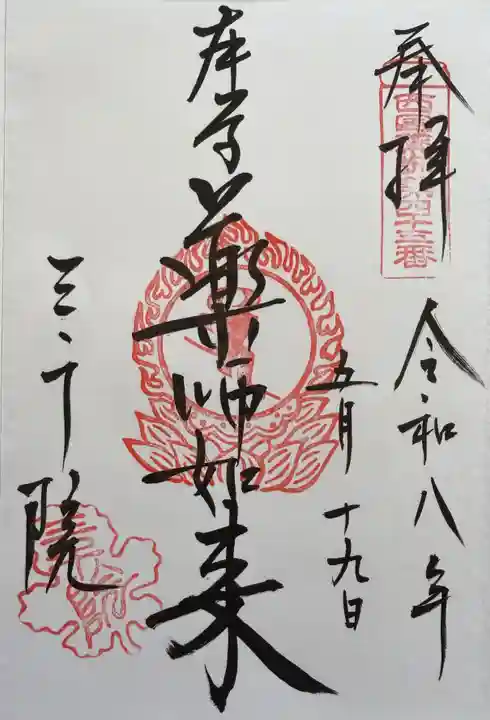 奉拝
西国薬師第四十五番
令和八年
五月十九日
本尊薬師如来
三千院